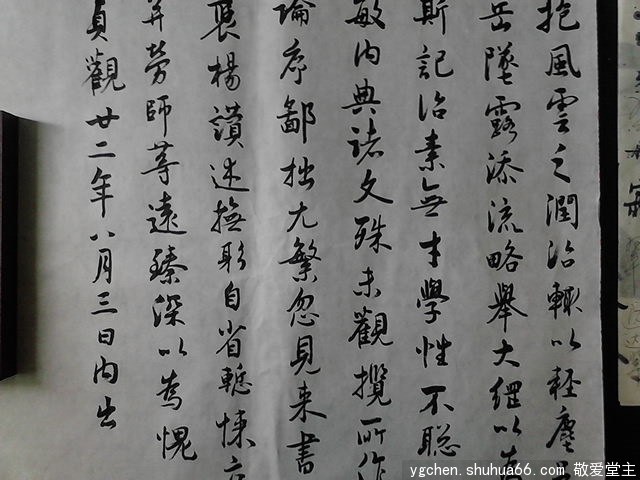 抱風雲之潤治輒以輕塵足
岳墜露添流略舉大綱以為
斯記治素無才學性不聡
敏内典諸文殊未觀攬所作
論序鄙拙尤繁忽見来書
褒楊讃述撫躬自省慙悚交
并勞師等遠臻深以為愧
貞觀廿二年八月三日内出
ygchen.shuhua66.com 敬爱堂主